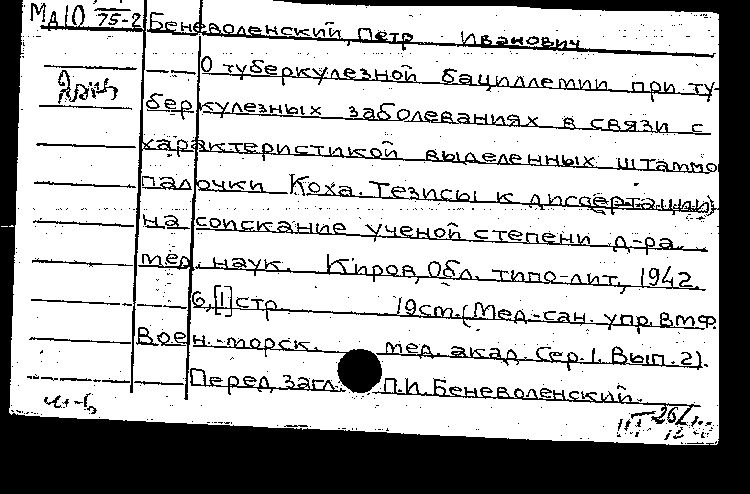 МД10 75-2 Беневоленский, Петр Иванович
О туберкулезной бациллемии при ту-
беркулезных заболеваниях в связи с
характеристикой выделенных штаммо
палочки Коха. Тезисы к диссертации
на соискание ученой степени д-ра.
мед. наук. Киров, Обл. типо-лит., 1942.
6,[1]стр. 19см.(Мед.-сан. упр. ВМФ.
Воен.-морск. мед. акад. Сер.1. Вып.2).
Перед загл. П.И.Беневоленский.